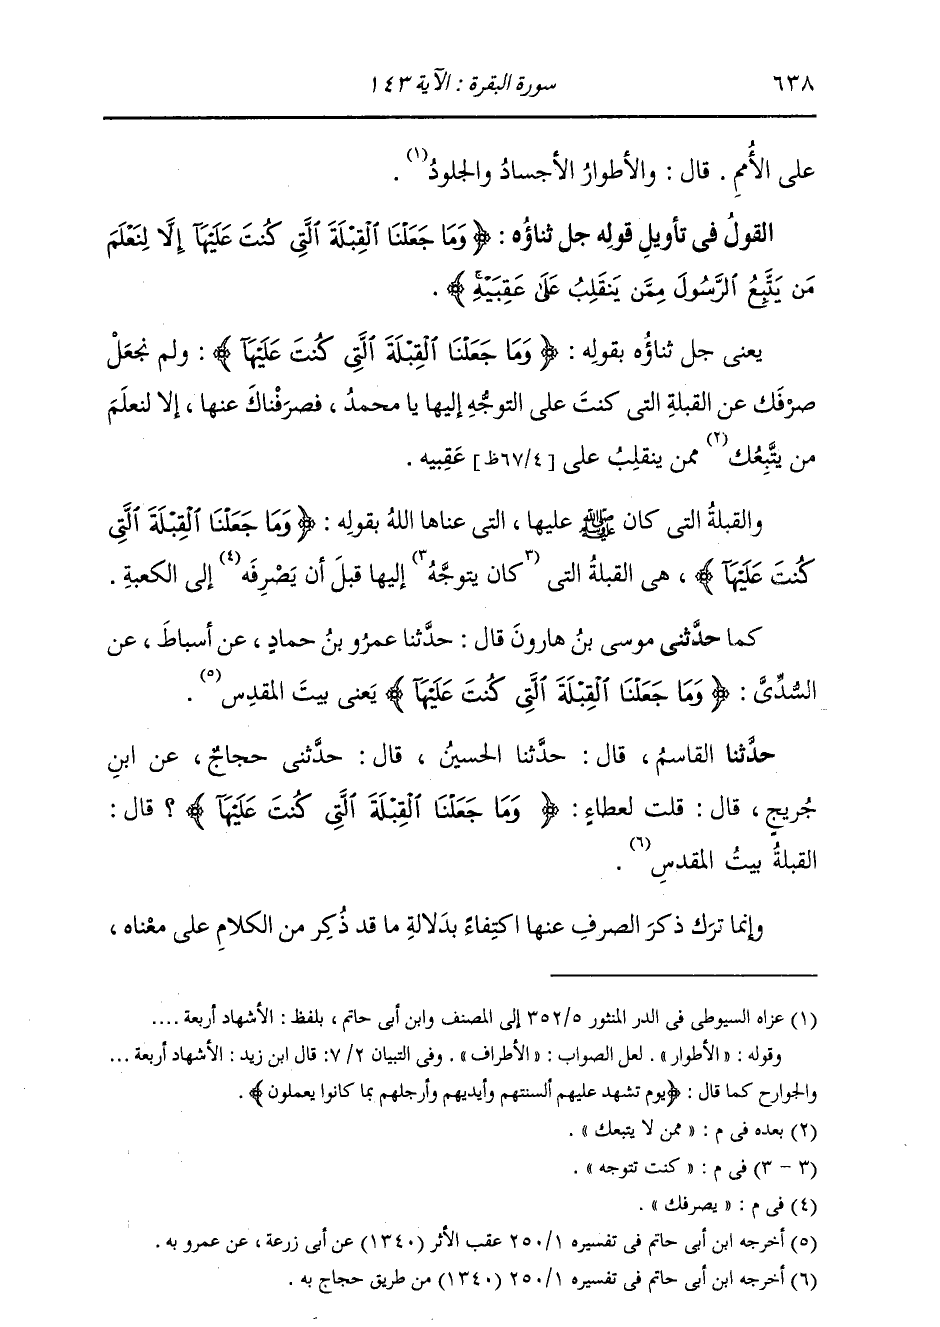 ٦٣٨ سورة البقرة : الآية ١٤٣
على الأُممِ . قال : والأطوارُ الأجسادُ والجلودُ(١) .
القولُ فى تأويلِ قولِه جل ثناؤُه : ﴿ وَمَا جَعَلْنَا ٱلْقِبْلَةَ ٱلَّتِى كُنتَ عَلَيْهَآ إِلَّا لِنَعْلَمَ
مَن يَتَّبِعُ ٱلرَّسُولَ مِمَّن يَنقَلِبُ عَلَىٰ عَقِبَيْهِۚ ﴾ .
يعنى جل ثناؤُه بقولِه : ﴿ وَمَا جَعَلْنَا ٱلْقِبْلَةَ ٱلَّتِى كُنتَ عَلَيْهَآ ﴾ : ولم نجعَلْ
صرْفَك عن القبلةِ التى كنتَ على التوجُّهِ إليها يا محمدُ ، فصرَفْناكَ عنها ، إلا لنعلَمَ
من يتَّبِعُك(٢) ممن ينقلِبُ على [٦٧/٤ظ] عَقِبيه .
والقبلةُ التى كان ﷺ عليها ، التى عناها اللهُ بقولِه : ﴿ وَمَا جَعَلْنَا ٱلْقِبْلَةَ ٱلَّتِى
كُنتَ عَلَيْهَآ ﴾ ، هى القبلةُ التى (٣كان يتوجَّهُ٣) إليها قبلَ أن يَصْرِفَه(٤) إلى الكعبةِ .
كما حدَّثنى موسى بنُ هارونَ قال : حدَّثنا عمرُو بنُ حمادٍ ، عن أسباطَ ، عن
السُّدِّىَّ : ﴿ وَمَا جَعَلْنَا ٱلْقِبْلَةَ ٱلَّتِى كُنتَ عَلَيْهَآ ﴾ يَعنى بيتَ المقدِسِ(٥) .
حدَّثنا القاسمُ ، قال : حدَّثنا الحسينُ ، قال : حدَّثنى حجاجٌ ، عن ابنِ
جُريجٍ ، قال : قلت لعطاءٍ : ﴿ وَمَا جَعَلْنَا ٱلْقِبْلَةَ ٱلَّتِى كُنتَ عَلَيْهَآ ﴾ ؟ قال :
القبلةُ بيتُ المقدسِ(٦) .
وإنما ترَك ذكرَ الصرفِ عنها اكتِفاءً بدَلالةِ ما قد ذُكِر من الكلامِ على معْناه ،
(١) عزاه السيوطى فى الدر المنثور ٣٥٢/٥ إلى المصنف وابن أبى حاتم ، بلفظ : الأشهاد أربعة ....
وقوله : «الأطوار» . لعل الصواب : «الأطراف» . وفى التبيان ٢/ ٧: قال ابن زيد : الأشهاد أربعة ...
والجوارح كما قال : ﴿يوم تشهد عليهم ألسنتهم وأيديهم وأرجلهم بما كانوا يعملون﴾ .
(٢) بعده فى م : « ممن لا يتبعك » .
(٣ - ٣) فى م : « كنت تتوجه » .
(٤) فى م : « يصرفك » .
(٥) أخرجه ابن أبى حاتم فى تفسيره ٢٥٠/١ عقب الأثر (١٣٤٠) عن أبى زرعة ، عن عمرو به .
(٦) أخرجه ابن أبى حاتم فى تفسيره ٢٥٠/١ (١٣٤٠) من طريق حجاج به .